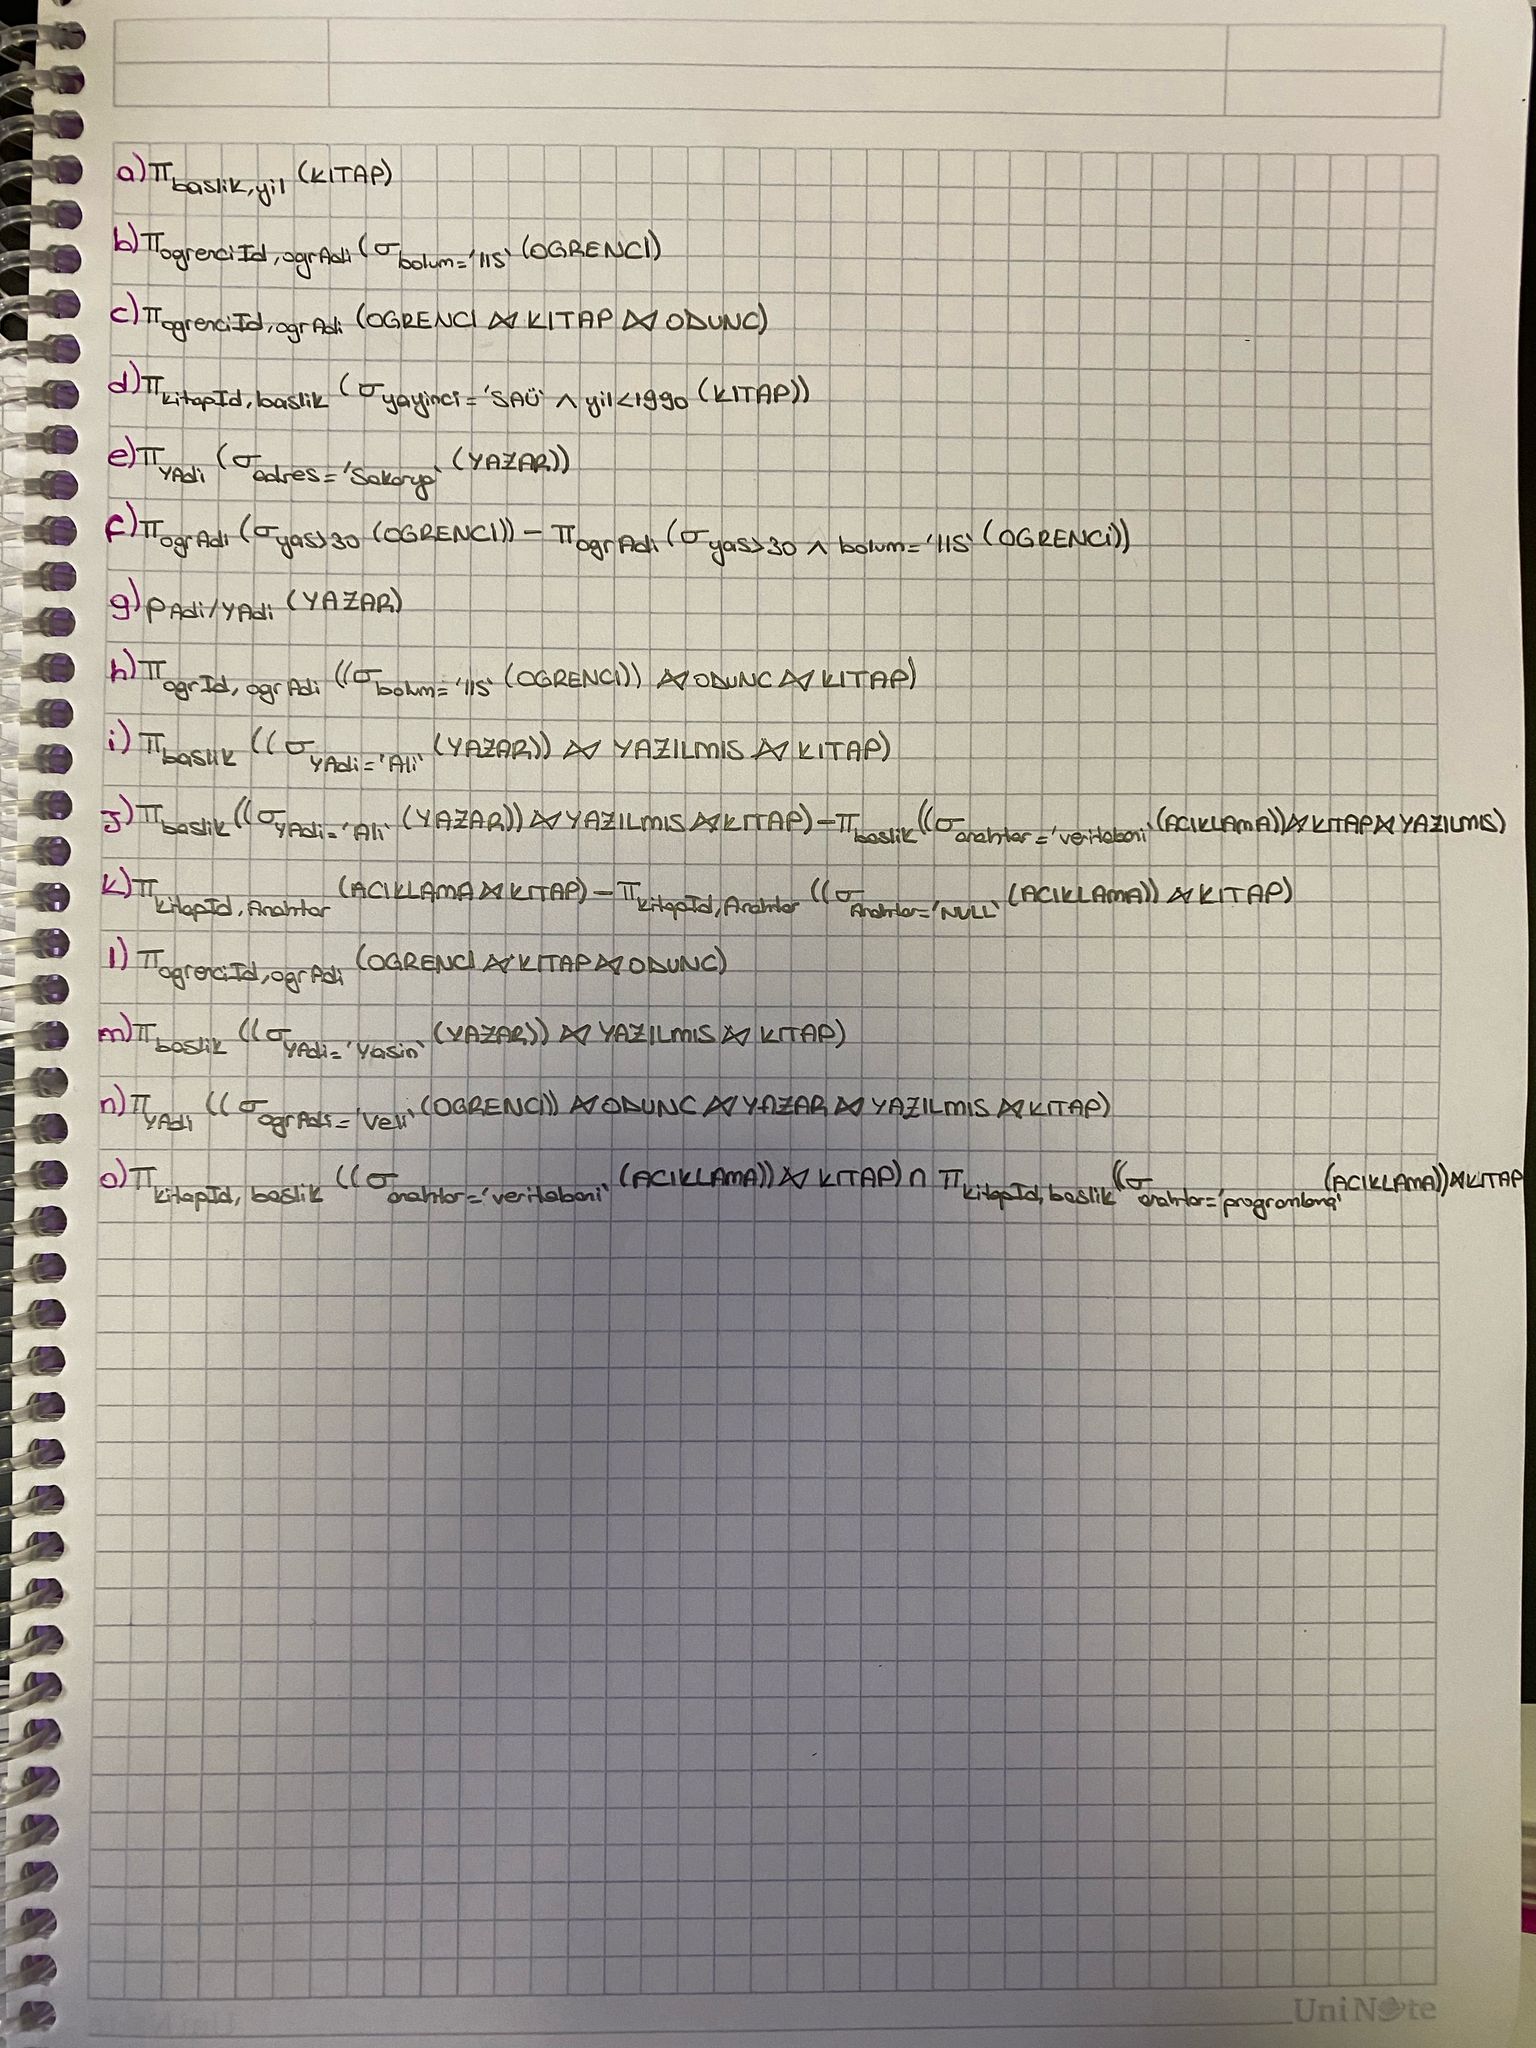 a) π baslik, yil (KITAP)
b) π ogrenciId, ogrAdi (σ bolum='IIS' (OGRENCI)
c) π ogrenciId, ogrAdi (OGRENCI ⋈ KITAP ⋈ ODUNC)
d) π kitapId, baslik (σ yayinci='SAÜ' ∧ yil<1990 (KITAP))
e) π YAdi (σ adres='Sakarya' (YAZAR))
f) π ogrAdi (σ yas>30 (OGRENCİ)) - π ogrAdi (σ yas>30 ∧ bolum='IIS' (OGRENCİ))
g) ρ Adi/YAdi (YAZAR)
h) π ogrId, ogrAdi ((σ bolum='IIS' (OGRENCI)) ⋈ ODUNC ⋈ KITAP)
i) π baslik ((σ YAdi='Ali' (YAZAR)) ⋈ YAZILMIS ⋈ KITAP)
j) π baslik ((σ YAdi='Ali' (YAZAR)) ⋈ YAZILMIS ⋈ KITAP) - π baslik ((σ anahtar='veritabani' (ACIKLAMA)) ⋈ KITAP ⋈ YAZILMIS)
k) π kitapId, Anahtar (ACIKLAMA ⋈ KITAP) - π kitapId, Anahtar ((σ Anahtar='NULL' (ACIKLAMA)) ⋈ KITAP)
l) π ogrenciId, ogrAdi (OGRENCI ⋈ KITAP ⋈ ODUNC)
m) π baslik ((σ YAdi='Yasin' (YAZAR)) ⋈ YAZILMIS ⋈ KITAP)
n) π YAdi ((σ ogrAdi='Veli' (OGRENCI)) ⋈ ODUNC ⋈ YAZAR ⋈ YAZILMIS ⋈ KITAP)
o) π kitapId, baslik ((σ anahtar='veritabani' (ACIKLAMA)) ⋈ KITAP) ∩ π kitapId, baslik ((σ anahtar='programlama' (ACIKLAMA)) ⋈ KITAP
UniNote